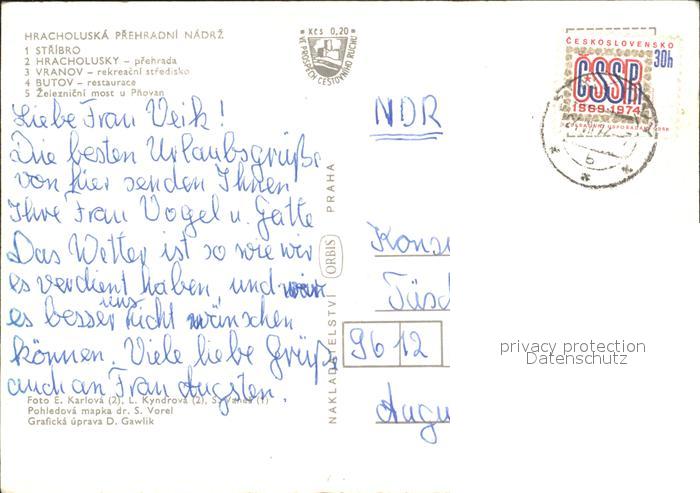 HRACHOLUSKÁ PŘEHRADNÍ NÁDRŽ
1 STŘÍBRO
2 HRACHOLUSKY – přehrada
3 VRANOV – rekreační středisko
4 BUTOV – restaurace
5 Železniční most u Pňovan
Liebe Frau Veik!
Die besten Urlaubsgrüße
von hier senden Ihnen
Ihre Frau Vogel u. Gatte
Das Wetter ist so wie wir
es verdient haben, und
es besser uns nicht wünschen
können. Viele liebe Grüße
auch an Frau Augsten.
Foto E. Karlová (2), L. Kyndrová (2), S. (1)
Pohledová mapka dr. S. Vorel
Grafická úprava D. Gawlik
Kčs 0,20
VE PROSPĚCH CESTOVNÍHO RUCHU
NAKLADATELSTVÍ ORBIS PRAHA
ČESKOSLOVENSKO
30h
ČSSR
1969-1974
NDR
Kons
Tüsd
9612
Augu
privacy protection
Datenschutz